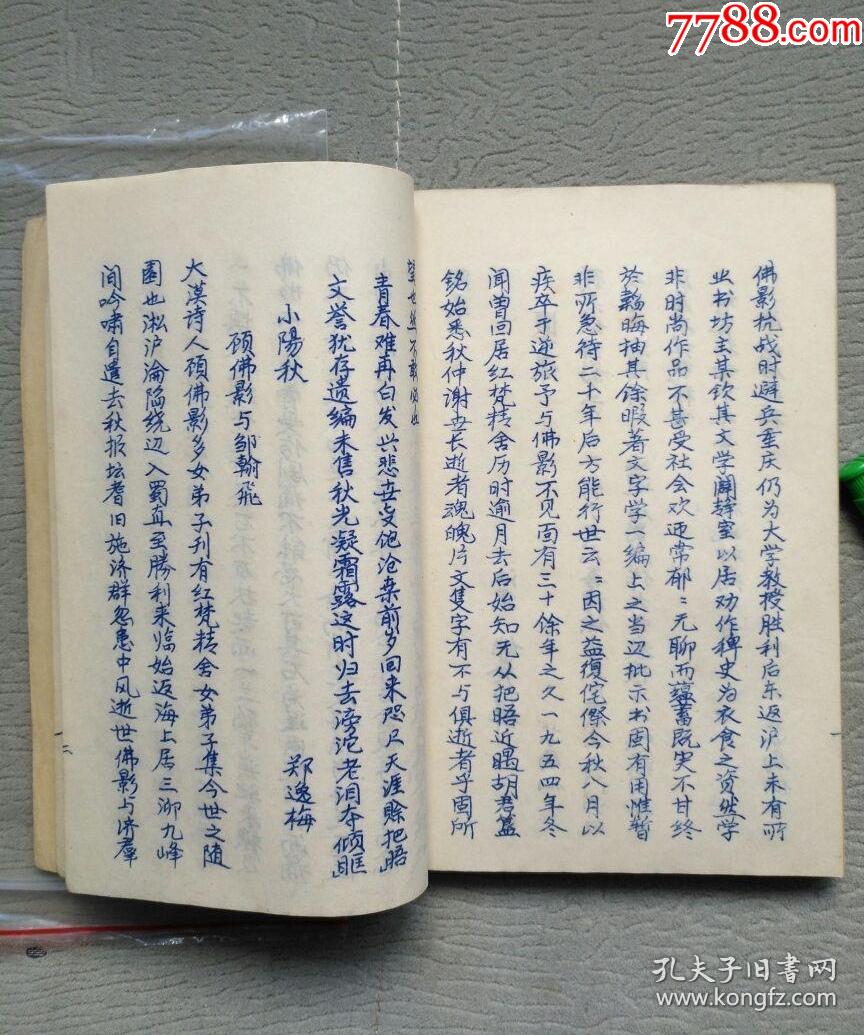 7788.com
佛影抗战时避兵重庆仍为大学教授胜利后东返沪上未有所
业书坊主某钦其文学闢静室以居劝作稗史为衣食之资然学
非时尚作品不甚受社会欢迎常郁:无聊而蕴蓄既实不甘终
於韜晦抽其馀暇著文字学一编上之当边批示书固有用惟暂
非所急待二十年后方能行世云:因之益復侘傺今秋八月以
疾卒于逆旅予与佛影不见面有三十馀年之久一九五四年冬
闻曾回居红梵精舍历时逾月去后始知无从把晤近遇胡君
铭始悉秋仲谢世长逝者魂魄片文隻字有不与俱逝者乎固所
望也然不敢必也
青春难再白发兴悲世变他沧桑前岁回来咫尺天涯赊把晤
文誉犹存遗编未售秋光凝霜露这时归去滂沱老泪夺倾眶
小陽秋 郑逸梅
顾佛影与邹翰飛
大漠诗人顾佛影多女弟子刊有红梵精舍女弟子集今世之随
園也淞沪淪陷绕辺入蜀直至勝利来临始返海上居三泖九峰
间吟啸自遣去秋报坛耆旧施济群忽患中风逝世佛影与济羣
二
孔夫子旧书网
www.kongfz.com